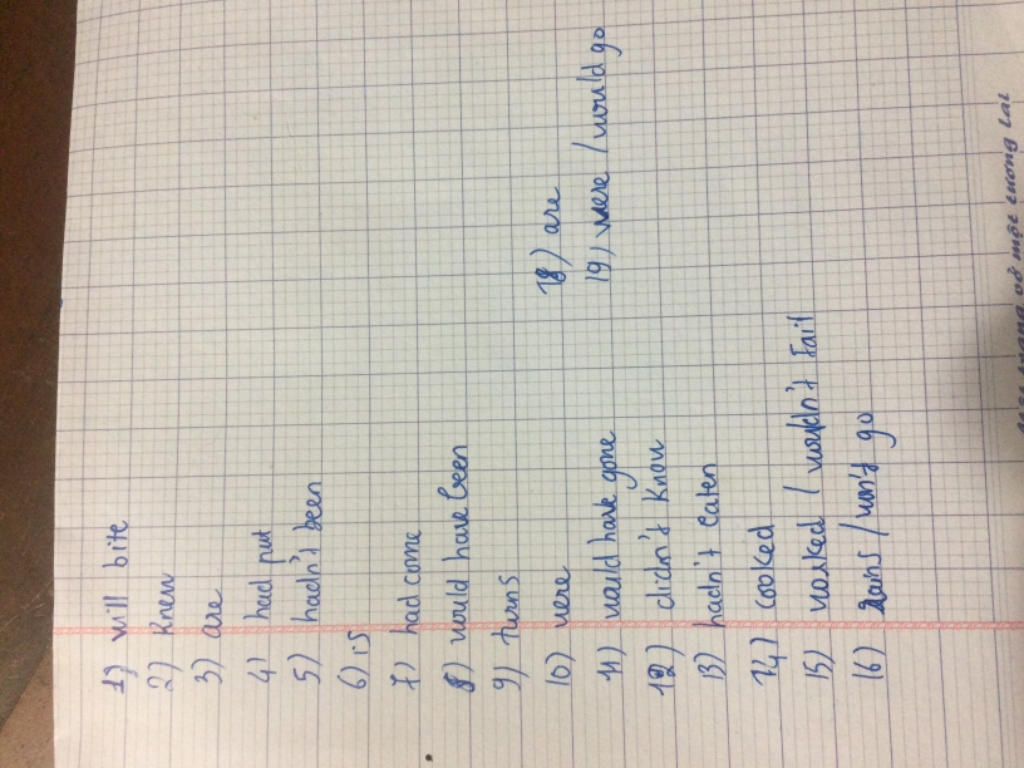 1) will bite
2) knew
3) are
4) had put
5) hadn't been
6) is
7) had come
8) would have been
9) turns
10) were
11) would have gone
12) didn't know
13) hadn't eaten
14) cooked
15) worked / wouldn't fail
16) rains / won't go
18) are
19) were / would go